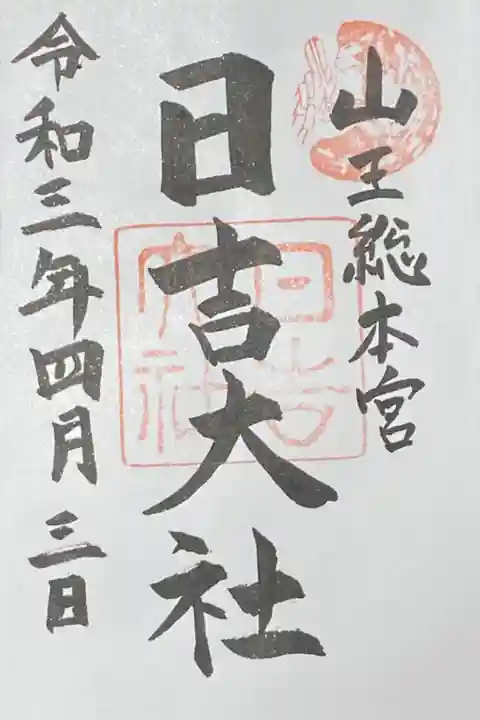 山王総本宮
日吉大社
日吉大社
令和三年四月三日